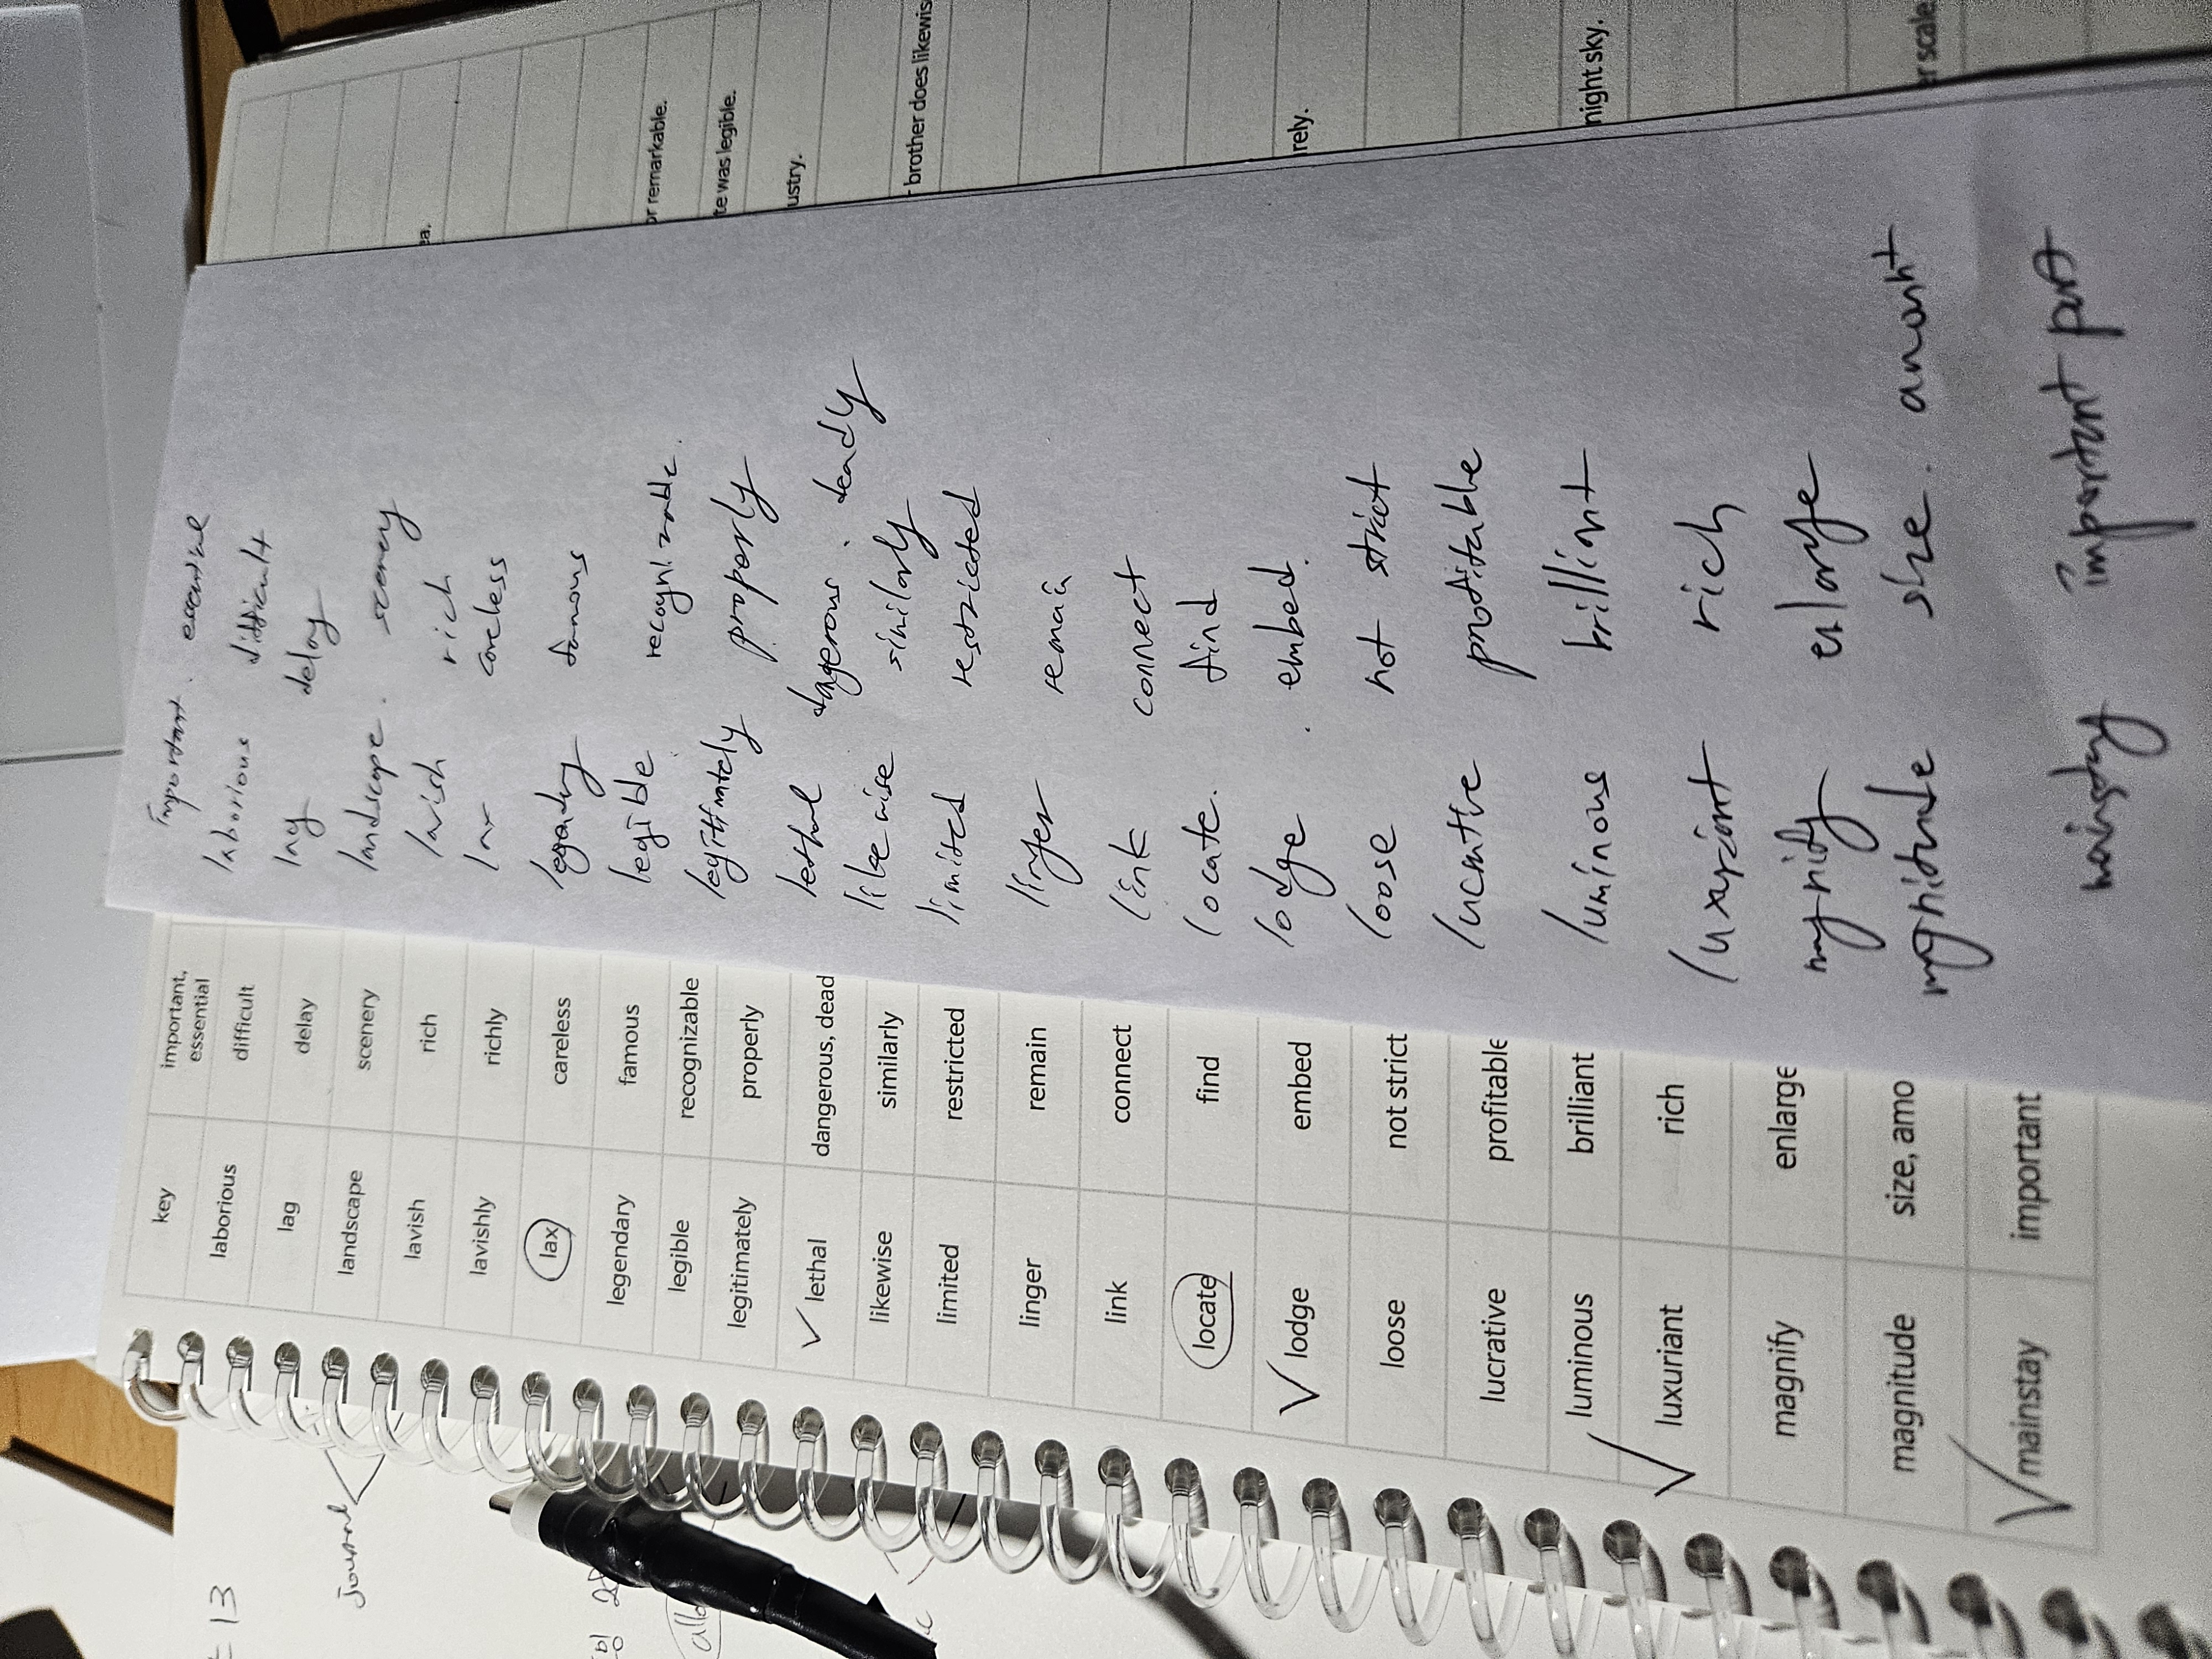 key important, essential
laborious difficult
lag delay
landscape scenery
lavish rich
lavishly richly
lax careless
legendary famous
legible recognizable
legitimately properly
✓ lethal dangerous, dead
likewise similarly
limited restricted
linger remain
link connect
locate find
✓ lodge embed
loose not strict
lucrative profitable
luminous brilliant
✓ luxuriant rich
magnify enlarge
magnitude size, amo
✓ mainstay important
important. essential
laborious difficult
lag delay
landscape. scenery
lavish rich
lax careless
legendary famous
legible recognizable.
legitimately properly
lethal dangerous. deady
likewise similarly
limited restricted
linger remain
link connect
locate. find
lodge. embed.
loose not strict
lucrative profitable
luminous brilliant
luxuriant rich
magnify enlarge
magnitude size. amount
mainstay important part
ea.
or remarkable.
te was legible.
ustry.
brother does likewis
rely.
night sky.
er scale
= 13
Journal